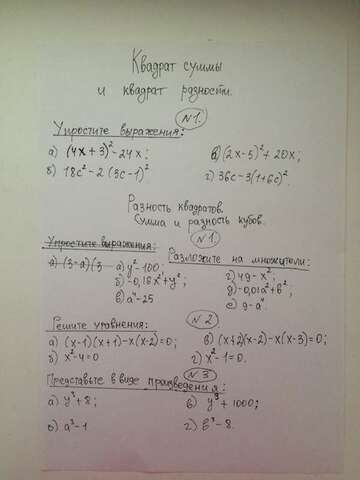 Квадрат суммы
и квадрат разности.
№1.
Упростите выражения:
а) (4x + 3)² - 24x; в) (2x - 5)² + 20x;
б) 18c² - 2 (3c - 1)² г) 36c - 3(1 + 6c)².
Разность квадратов.
Сумма и разность кубов.
№1.
Упростите выражения: Разложите на множители:
а) (3 - a)(3 а) y² - 100; г) 49 - x²;
б) -0,16x² + y²; д) -0,01a² + b²;
в) a⁴ - 25 е) 9 - a⁴.
Решите уравнения: №2
а) (x - 1)(x + 1) - x(x - 2) = 0; в) (x + 2)(x - 2) - x(x - 3) = 0;
б) x² - 4 = 0 г) x² - 1 = 0.
№3
Представьте в виде произведения:
а) y³ + 8; в) y³ + 1000;
б) a³ - 1 г) b³ - 8.